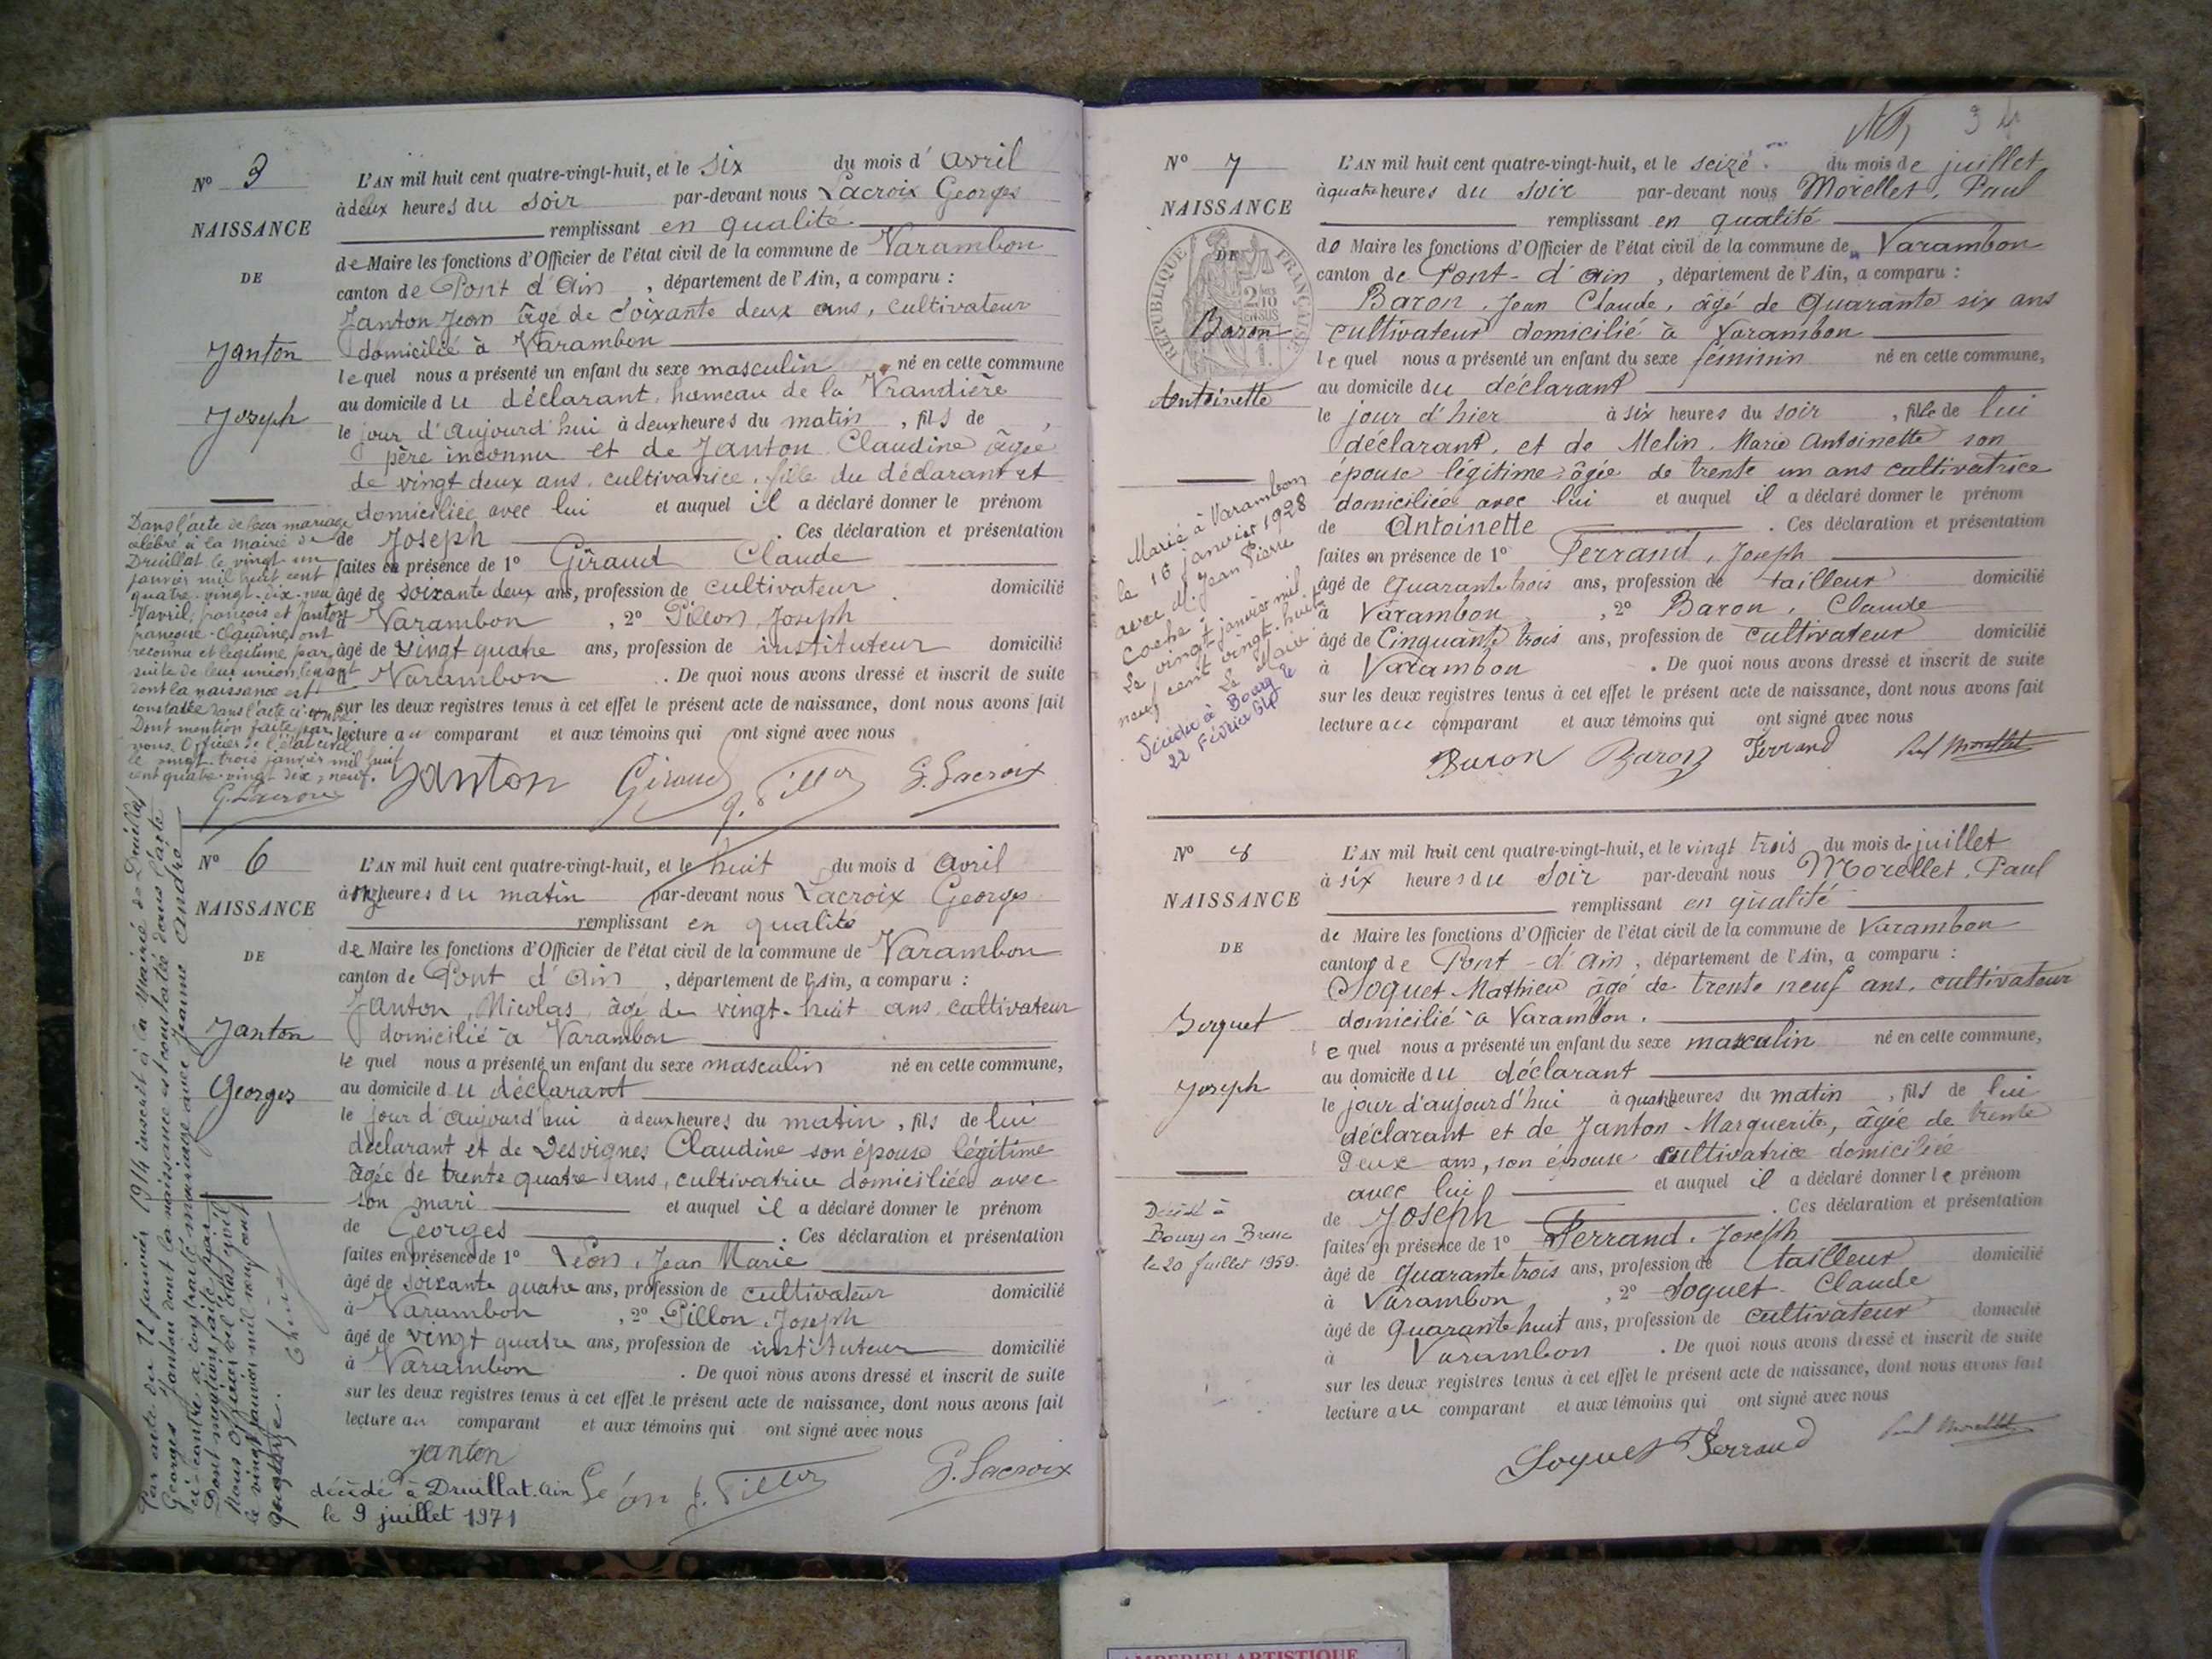 Nº 3
NAISSANCE
DE
Janton
Joseph
L'AN mil huit cent quatre-vingt-huit, et le six du mois d'avril
à deux heures du soir par-devant nous Lacroix Georges
remplissant en qualité
de Maire les fonctions d'Officier de l'état civil de la commune de Varambon
canton de Pont d'Ain, département de l'Ain, a comparu :
Janton Jean âgé de soixante deux ans, cultivateur
domicilié à Varambon
lequel nous a présenté un enfant du sexe masculin né en cette commune
au domicile du déclarant, hameau de la
le jour d'aujourd'hui à deux heures du matin, fils de
père inconnu et de Janton Claudine âgée
de vingt deux ans, cultivatrice, fille du déclarant et
domiciliée avec lui et auquel il a déclaré donner le prénom
de Joseph . Ces déclaration et présentation
faites en présence de 1º Giraud Claude
âgé de soixante deux ans, profession de cultivateur domicilié
à Varambon, 2º Pillon, Joseph
âgé de vingt quatre ans, profession de instituteur domicilié
à Varambon . De quoi nous avons dressé et inscrit de suite
sur les deux registres tenus à cet effet le présent acte de naissance, dont nous avons fait
lecture au comparant et aux témoins qui ont signé avec nous
Janton Giraud J. Pillon G. Lacroix
Dans l'acte de leur mariage
célébré à la Mairie de
Druillat le vingt un
janvier mil huit cent
quatre-vingt-dix-neuf
françois et Janton
françoise Claudine, ont
reconnu et légitimé par
suite de leur union, l'enfant
dont la naissance est
constatée dans l'acte ci-contre.
Dont mention faite par
nous Officier de l'état civil
le vingt trois janvier mil huit
cent quatre-vingt dix-neuf.
G. Lacroix
Nº 6
NAISSANCE
DE
Janton
Georges
L'AN mil huit cent quatre-vingt-huit, et le huit du mois d avril
à onze heures du matin par-devant nous Lacroix Georges
remplissant en qualité
de Maire les fonctions d'Officier de l'état civil de la commune de Varambon
canton de Pont d'Ain, département de l'Ain, a comparu :
Janton, Nicolas, âgé de vingt-huit ans cultivateur
domicilié à Varambon
lequel nous a présenté un enfant du sexe masculin né en cette commune,
au domicile du déclarant
le jour d'aujourd'hui à deux heures du matin, fils de lui
déclarant et de Desvignes Claudine son épouse légitime
âgée de trente quatre ans, cultivatrice domiciliée avec
son mari et auquel il a déclaré donner le prénom
de Georges . Ces déclaration et présentation
faites en présence de 1º Léon, Jean Marie
âgé de soixante quatre ans, profession de cultivateur domicilié
à Varambon, 2º Pillon, Joseph
âgé de vingt quatre ans, profession de instituteur domicilié
à Varambon . De quoi nous avons dressé et inscrit de suite
sur les deux registres tenus à cet effet le présent acte de naissance, dont nous avons fait
lecture au comparant et aux témoins qui ont signé avec nous
Janton
Léon J. Pillon G. Lacroix
décédé à Druillat. Ain
le 9 juillet 1971
Par acte du 12 janvier 1914 inscrit à la Mairie de Druillat
Georges Janton dont la naissance est constatée dans l'acte
ci-contre a contracté mariage avec Jeanne André
Dont mention faite par
Nous Officier de l'état civil
le vingt janvier mil neuf cent
quatorze.
Nº 7
NAISSANCE
DE
Baron
Antoinette
RÉPUBLIQUE FRANÇAISE
34
L'AN mil huit cent quatre-vingt-huit, et le seize du mois de juillet
à quatre heures du soir par-devant nous Morellet, Paul
remplissant en qualité
de Maire les fonctions d'Officier de l'état civil de la commune de Varambon
canton de Pont-d'Ain, département de l'Ain, a comparu :
Baron, Jean Claude, âgé de quarante six ans
cultivateur domicilié à Varambon
lequel nous a présenté un enfant du sexe féminin né en cette commune,
au domicile du déclarant
le jour d'hier à six heures du soir, fille de lui
déclarant, et de Melin, Marie Antoinette son
épouse légitime âgée de trente un ans cultivatrice
domiciliée avec lui et auquel il a déclaré donner le prénom
de Antoinette . Ces déclaration et présentation
faites en présence de 1º Ferrand, Joseph
âgé de quarante trois ans, profession de tailleur domicilié
à Varambon, 2º Baron, Claude
âgé de Cinquante trois ans, profession de cultivateur domicilié
à Varambon . De quoi nous avons dressé et inscrit de suite
sur les deux registres tenus à cet effet le présent acte de naissance, dont nous avons fait
lecture au comparant et aux témoins qui ont signé avec nous
Baron Baron Ferrand Paul Morellet
Marié à Varambon
le 16 janvier 1928
avec M. Jean Pierre
Coche.
Le vingt janvier mil
neuf cent vingt-huit.
Le Maire
à Bourg le
22 Février
Nº 8
NAISSANCE
DE
Soquet
Joseph
L'AN mil huit cent quatre-vingt-huit, et le vingt trois du mois de juillet
à six heures du soir par-devant nous Morellet, Paul
remplissant en qualité
de Maire les fonctions d'Officier de l'état civil de la commune de Varambon
canton de Pont-d'Ain, département de l'Ain, a comparu :
Soquet Mathieu âgé de trente neuf ans, cultivateur
domicilié à Varambon.
lequel nous a présenté un enfant du sexe masculin né en cette commune,
au domicile du déclarant
le jour d'aujourd'hui à quatre heures du matin, fils de lui
déclarant et de Janton Marguerite, âgée de trente
deux ans, son épouse cultivatrice domiciliée
avec lui et auquel il a déclaré donner le prénom
de Joseph . Ces déclaration et présentation
faites en présence de 1º Ferrand, Joseph
âgé de quarante trois ans, profession de tailleur domicilié
à Varambon, 2º Soquet Claude
âgé de quarante huit ans, profession de cultivateur domicilié
à Varambon . De quoi nous avons dressé et inscrit de suite
sur les deux registres tenus à cet effet le présent acte de naissance, dont nous avons fait
lecture au comparant et aux témoins qui ont signé avec nous
Soquet Ferrand Paul Morellet
Décédé à
Bourg en Bresse
le 20 juillet 1959.
AMBERIEU ARTISTIQUE